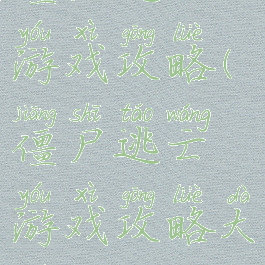 yóu xì gōng lüè
游戏攻略(
jiāng shī táo wáng
僵尸逃亡
yóu xì gōng lüè dà
游戏攻略大